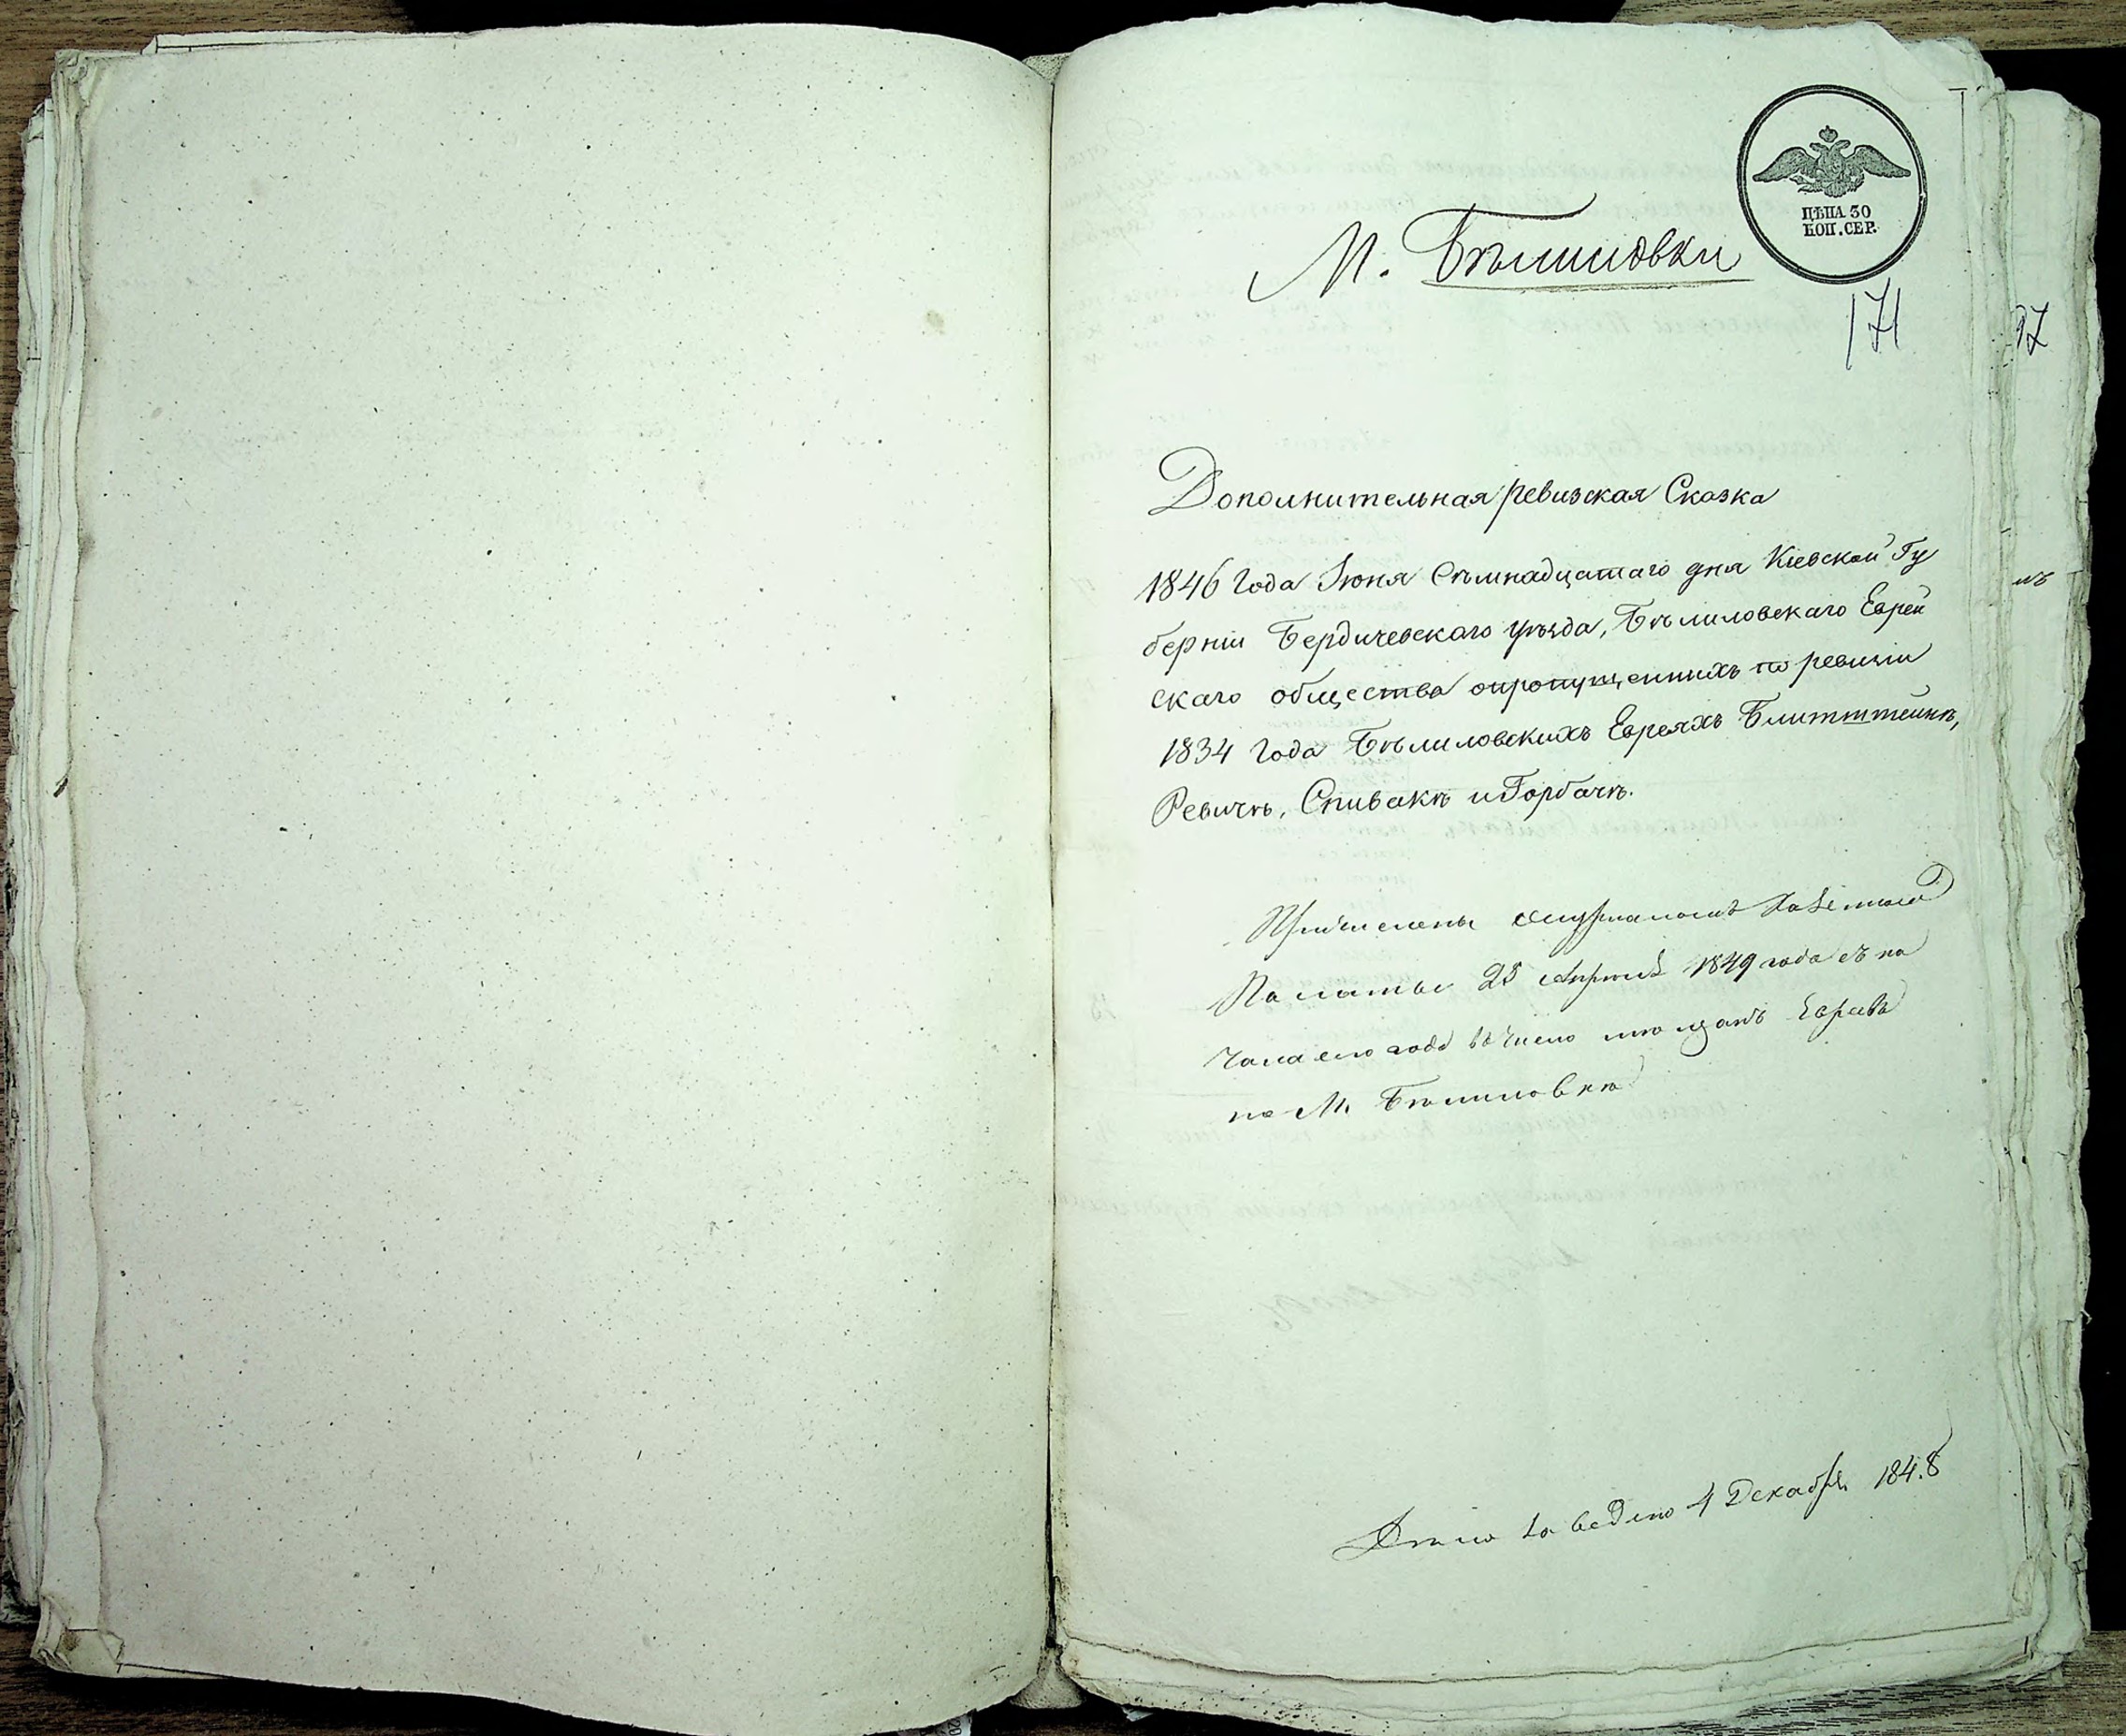 ЦѢНА 30
КОП. СЕР.
М. Бѣлиловки
171
97
Дополнительная ревизская Сказка
1846 Года Июня Сѣмнадцатаго дня Кіевской Гу
берніи Бердичевскаго уѣзда, Бѣлиловскаго Еврей
скаго общества опропущенныхъ по ревизіи
1834 Года Бѣлиловскихъ Евреяхъ Блитштейнѣ,
Ревичѣ, Спивакѣ и Горбачѣ.
Причислены журналомъ Казенной
Палаты 25 Апрѣля 1849 года съ на
чала сего года въ число мѣщанъ Евреевъ
по М. Бѣлиловкѣ
Дѣло заведено 4 Декабря 184.8